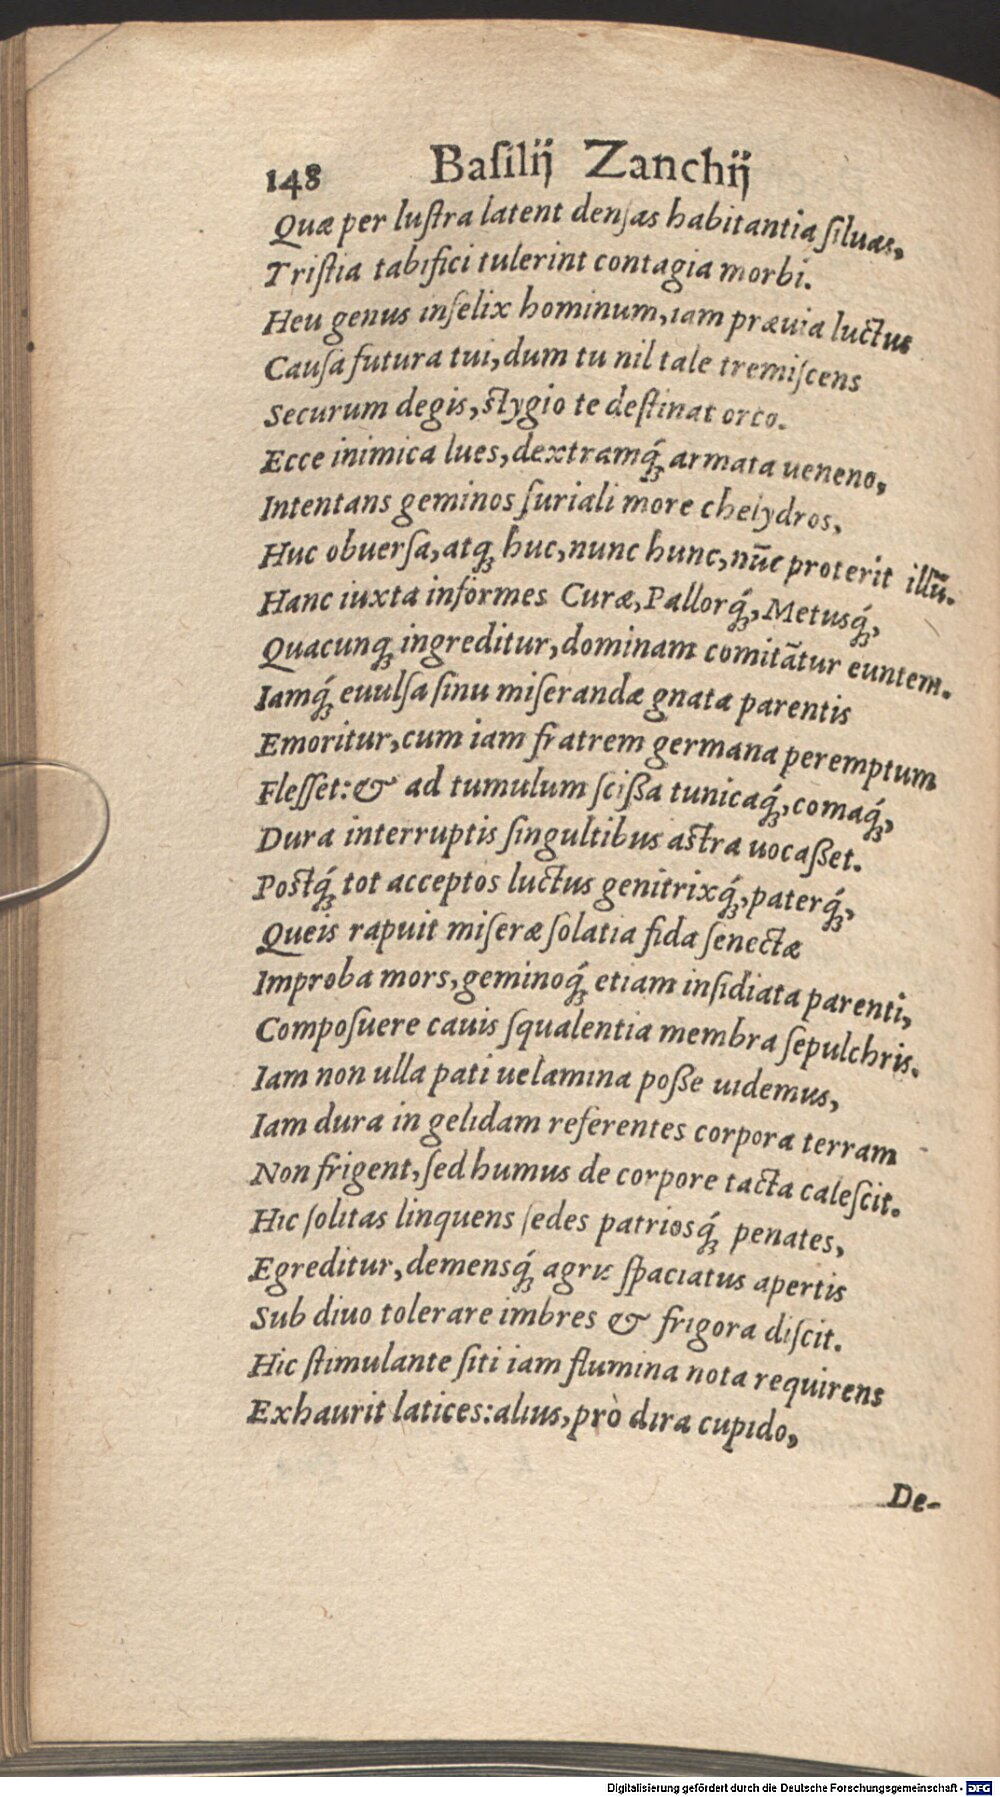 148 Baſilij Zanchij
Quæ per luſtra latent denſas habitantia ſiluas,
Triſtia tabifici tulerint contagia morbi.
Heu genus infelix hominum, iam præuia luctus
Cauſa futura tui, dum tu nil tale tremiſcens
Securum degis, ſtygio te deſtinat orco.
Ecce inimica lues, dextramq́ꝫ armata ueneno,
Intentans geminos furiali more chelydros,
Huc obuerſa, atqꝫ huc, nunc hunc, nūc proterit illū.
Hanc iuxta informes Curæ, Pallorq́ꝫ, Metusq́ꝫ,
Quacunqꝫ ingreditur, dominam comitātur euntem.
Iamq́ꝫ euulſa ſinu miſerandæ gnata parentis
Emoritur, cum iam fratrem germana peremptum
Fleſſet: & ad tumulum ſciſſa tunicaq́ꝫ, comaq́ꝫ,
Dura interruptis ſingultibus aſtra uocaſſet.
Poſtq́ꝫ tot acceptos luctus genitrixq́ꝫ, paterq́ꝫ,
Queis rapuit miſeræ ſolatia fida ſenectæ
Improba mors, geminoq́ꝫ etiam inſidiata parenti,
Compoſuere cauis ſqualentia membra ſepulchris.
Iam non ulla pati uelamina poſſe uidemus,
Iam dura in gelidam referentes corpora terram
Non frigent, ſed humus de corpore tacta caleſcit.
Hic ſolitas linquens ſedes patriosq́ꝫ penates,
Egreditur, demensq́ꝫ agris ſpaciatus apertis
Sub diuo tolerare imbres & frigora diſcit.
Hic ſtimulante ſiti iam flumina nota requirens
Exhaurit latices: alius, prò dira cupido,
De-
Digitalisierung gefördert durch die Deutsche Forschungsgemeinschaft - DFG